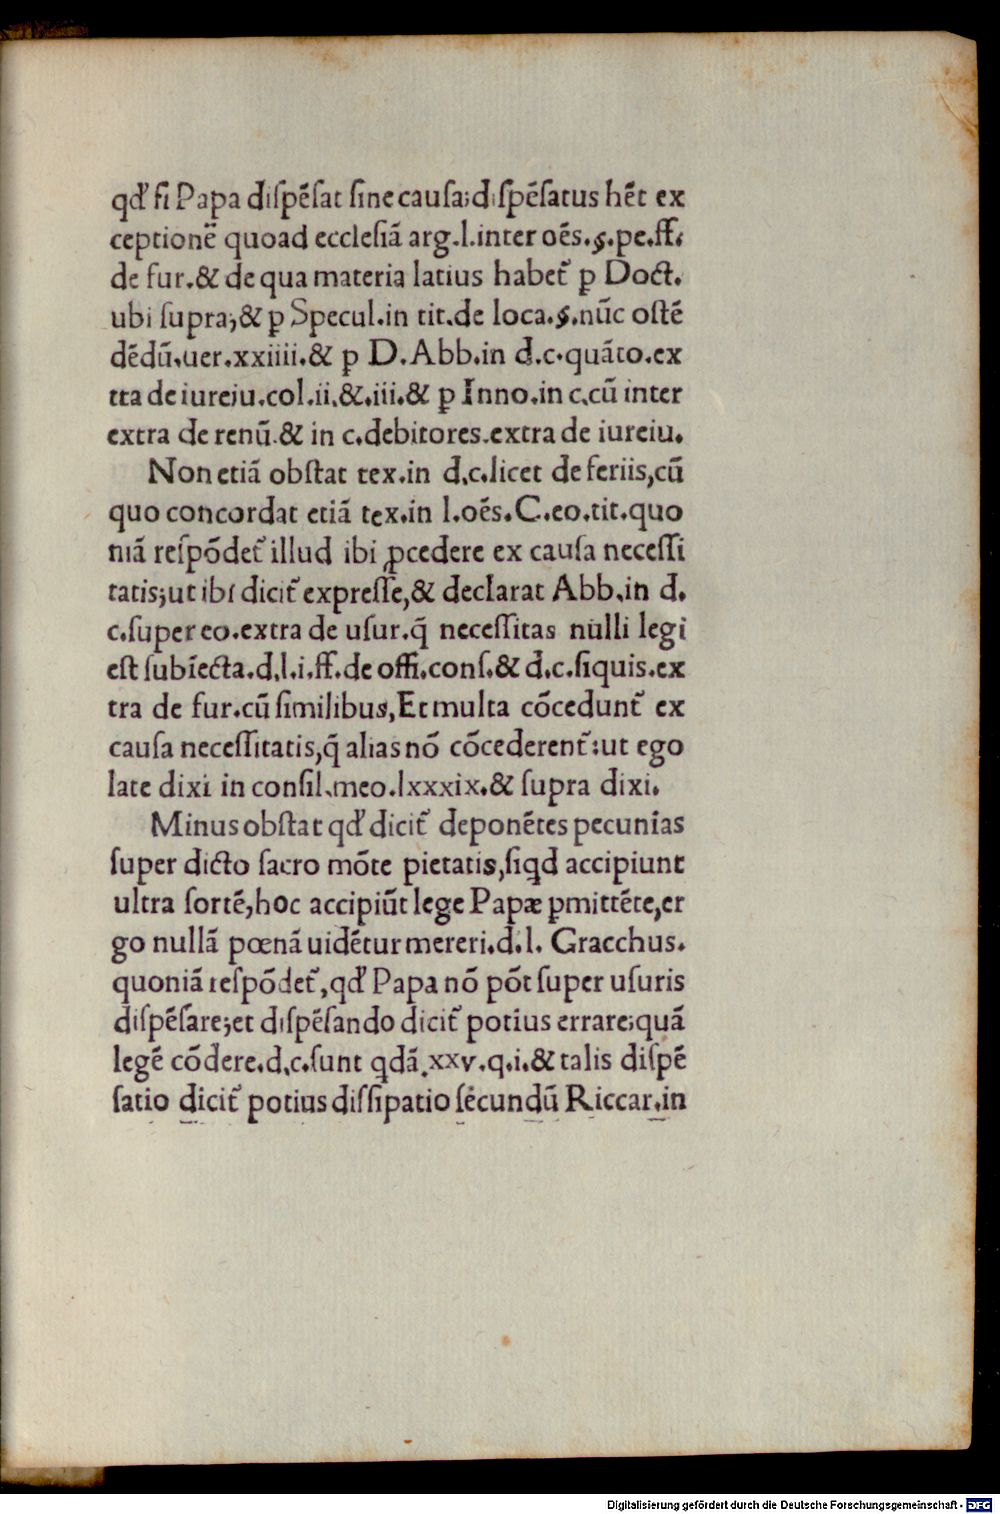 qđ ſi Papa diſpēſat ſine cauſa;diſpēſatus hēt ex
ceptionē quoad eccleſiā arg.l.inter oēs.§.pe.ff.
de fur.& de qua materia latius habet᷑ ꝑ Doct.
ubi ſupra;& ꝑ Specul.in tit.de loca.§.nūc oſtē
dēdū.uer.xxiiii.& ꝑ D.Abb.in d.c.quāto.ex
tra de iureiu.col.ii.&.iii.& ꝑ Inno.in c.cū inter
extra de renū.& in c.debitores.extra de iureiu.
Non etiā obſtat tex.in d.c.licet de feriis,cū
quo concordat etiā tex.in l.oēs.C.eo.tit.quo
niā reſpōdet᷑ illud ibi ꝓcedere ex cauſa neceſſi
tatis;ut ibi dicit᷑ expreſſe,& declarat Abb.in d.
c.ſuper eo.extra de uſur.q̄ neceſſitas nulli legi
eſt ſubiecta.d.l.i.ff.de offi.conſ.& d.c.ſiquis.ex
tra de fur.cū ſimilibus,Et multa cōcedunt᷑ ex
cauſa neceſſitatis,q̄ alias nō cōcederent᷑:ut ego
late dixi in conſil.meo.lxxxix.& ſupra dixi.
Minus obſtat qđ dicit᷑ deponētes pecunias
ſuper dicto ſacro mōte pietatis,ſiqd accipiunt
ultra ſortē,hoc accipiūt lege Papæ ꝑmittēte,er
go nullā pœnā uidētur mereri.d.l. Gracchus.
quoniā reſpōdet᷑,qđ Papa nō pōt ſuper uſuris
diſpēſare;et diſpēſando dicit᷑ potius errare;quā
legē cōdere.d.c.ſunt qdā.xxv.q.i.& talis diſpē
ſatio dicit᷑ potius diſſipatio ſecundū Riccar.in
Digitalisierung gefördert durch die Deutsche Forschungsgemeinschaft - DFG